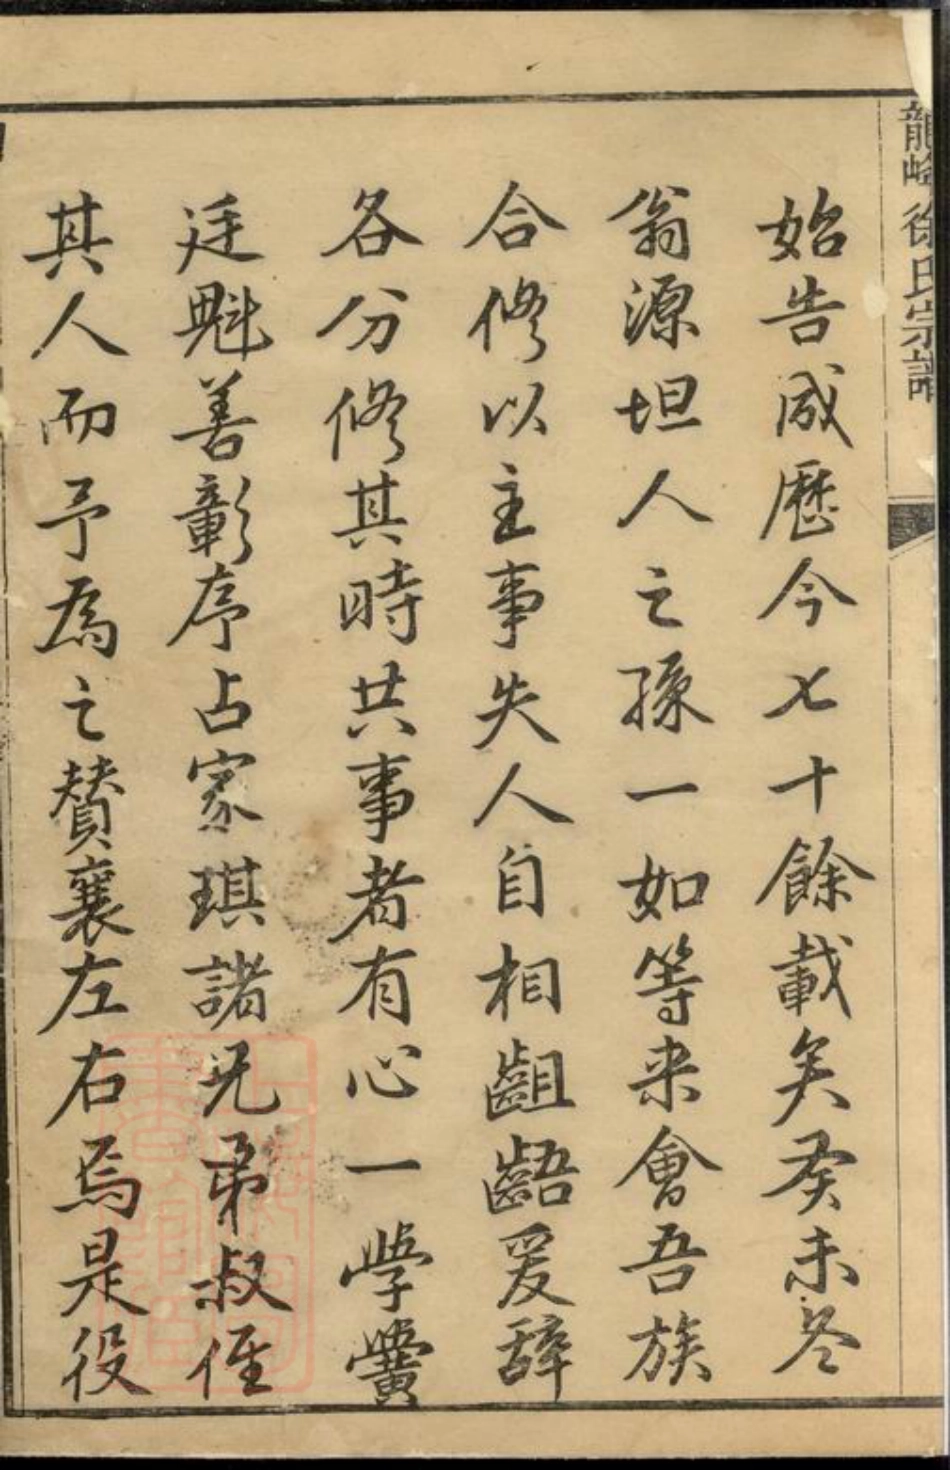 龍峰徐氏宗譜
始告成歷今七十餘載矣癸未冬
翁源坦人之孫一如等来會吾族
合修以主事失人自相齟齬爰辞
各分修其時共事者有心一學黌
廷魁善彰序占家琪諸兄弟叔侄
其人而予為之賛襄左右焉是役